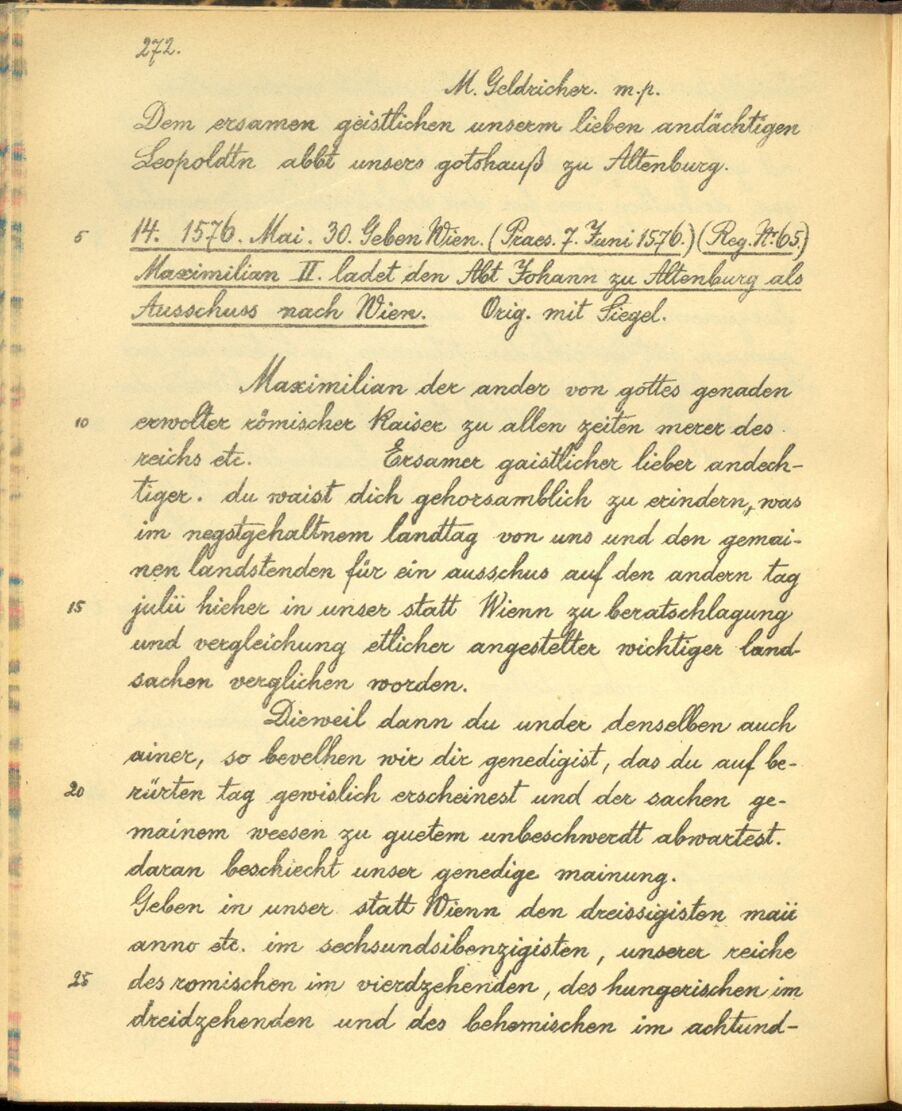 272.
M. Geldricher. m.p.
Dem ersamen geistlichen unserm lieben andächtigen
Leopoldtn abbt unsers gotshauß zu Altenburg.
5 14. 1576. Mai. 30. Geben Wien. (Praes. 7. Juni 1576.) (Reg. Nr. 65.)
Maximilian II. ladet den Abt Johann zu Altenburg als
Ausschuss nach Wien. Orig. mit Siegel.
Maximilian der ander von gottes genaden
10 erwolter römischer kaiser zu allen zeiten merer des
reichs etc. Ersamer gaistlicher lieber andech-
tiger. du waist dich gehorsamblich zu erindern, was
im negstgehaltnem landtag von uns und den gemai-
nen landstenden für ein ausschus auf den andern tag
15 julii hieher in unser statt Wienn zu beratschlagung
und vergleichung etlicher angestelter wichtiger land-
sachen verglichen worden.
Dieweil dann du under denselben auch
ainer, so bevelhen wir dir genedigist, das du auf be-
20 rürten tag gewislich erscheinest und der sachen ge-
mainem weesen zu guetem unbeschwerdt abwartest.
daran beschiecht unser genedige mainung.
Geben in unser statt Wienn den dreissigisten maii
anno etc. im sechsundsibenzigisten, unserer reiche
25 des romischen im vierdzehenden, des hungerischen im
dreidzehenden und des behemischen im achtund-